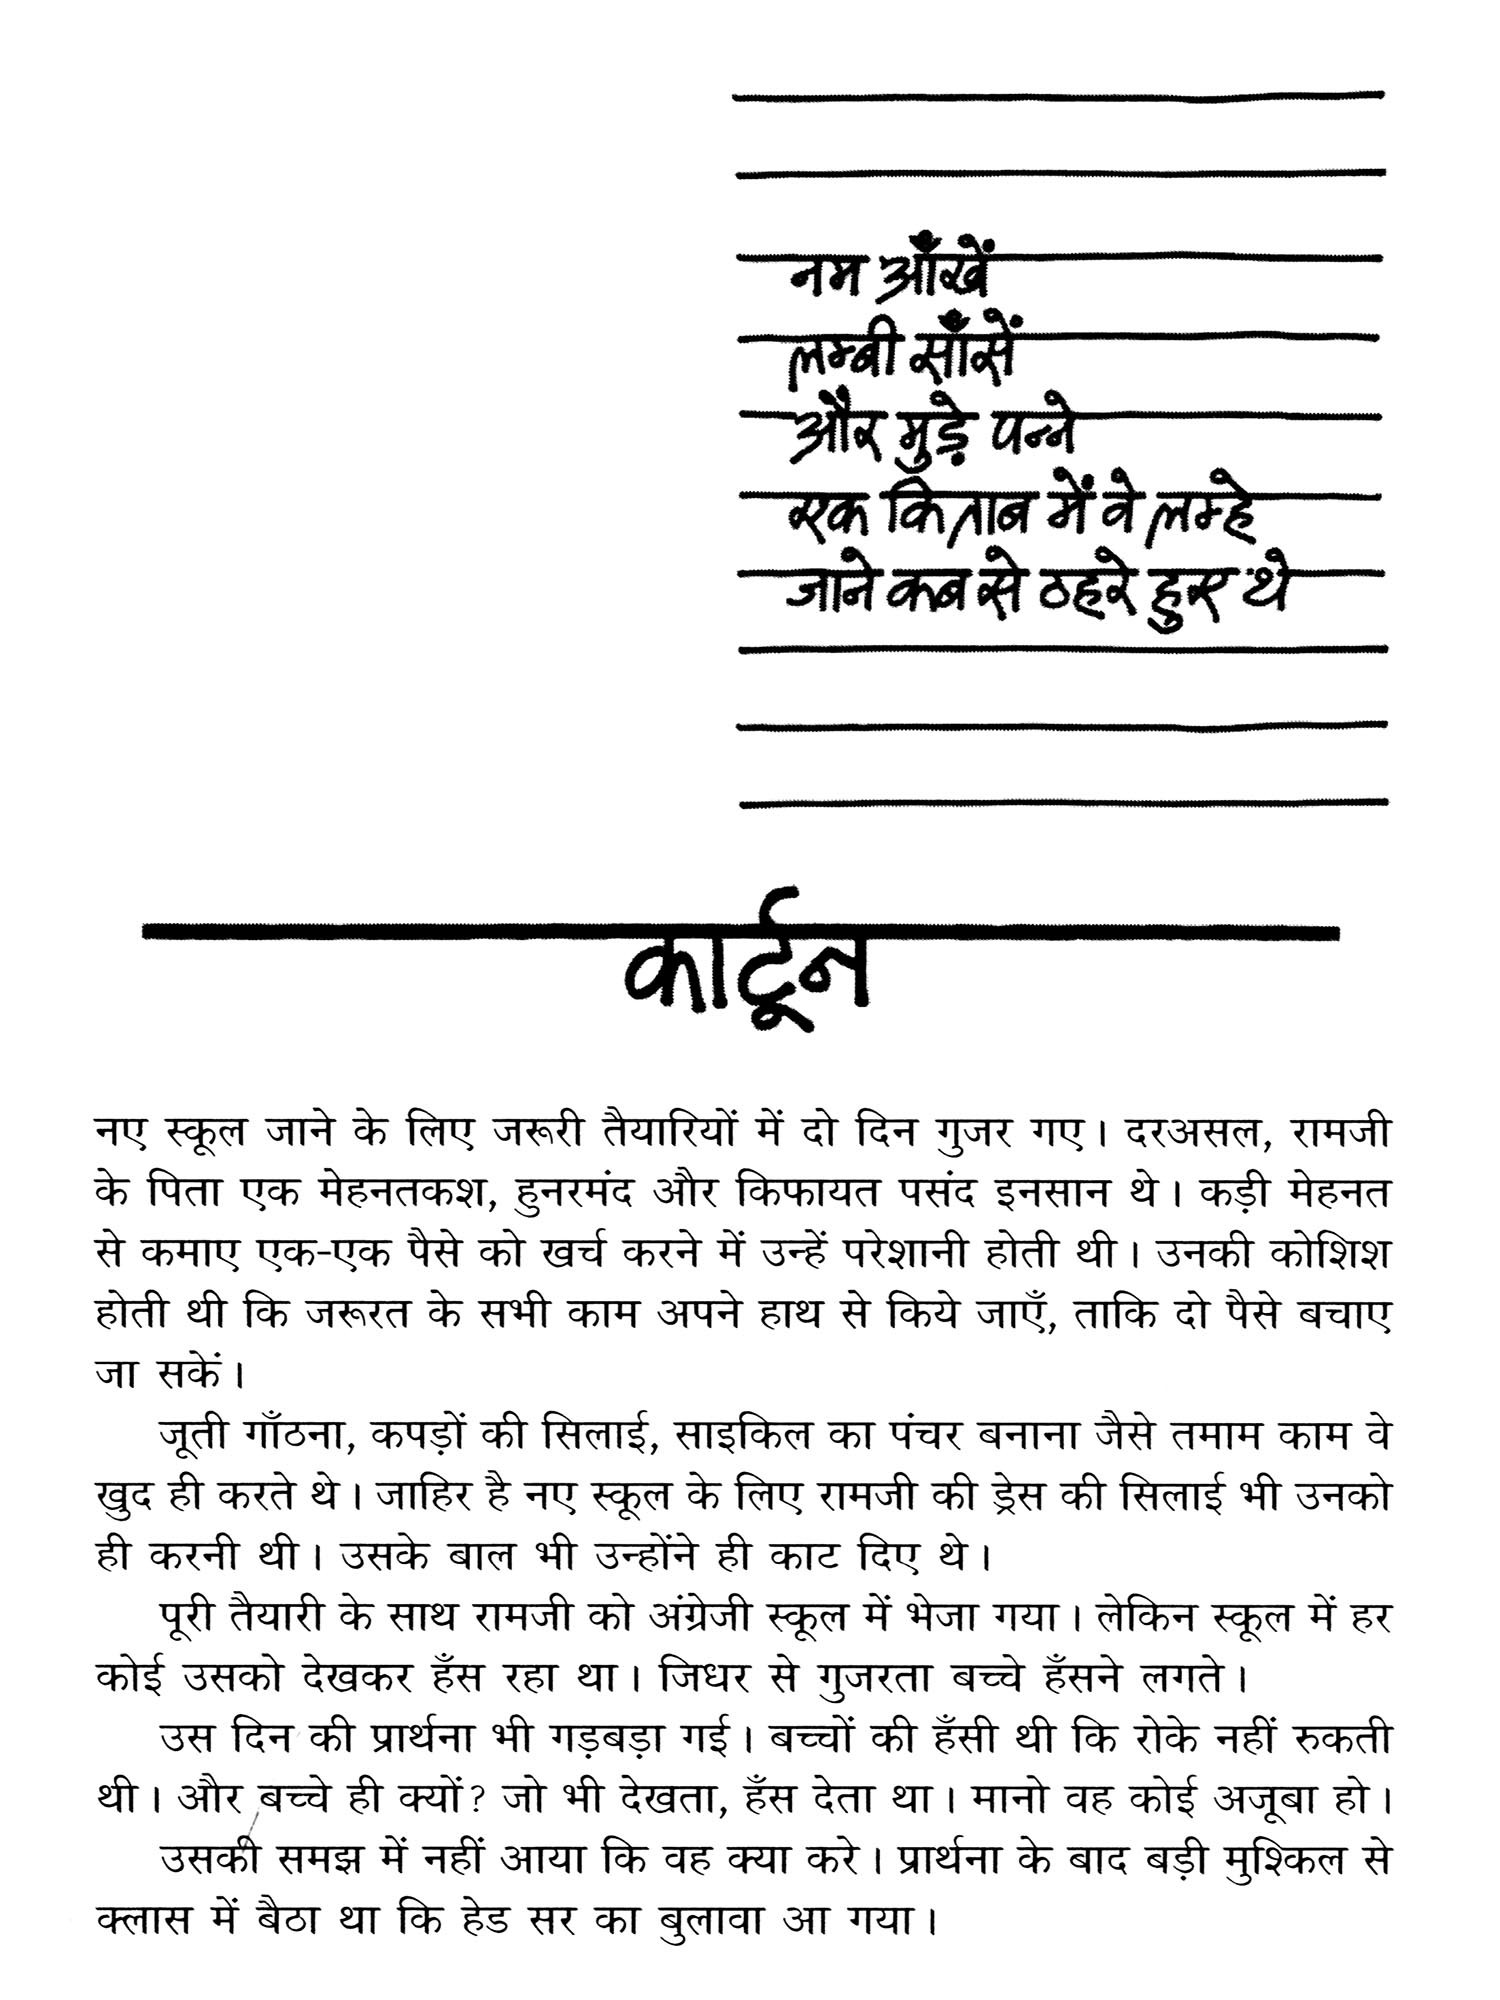 नम आँखें
लम्बी साँसें
और मुड़े पन्ने
एक किताब में वे लम्हे
जाने कब से ठहरे हुए थे
कार्टून
नए स्कूल जाने के लिए जरूरी तैयारियों में दो दिन गुजर गए। दरअसल, रामजी
के पिता एक मेहनतकश, हुनरमंद और किफायत पसंद इनसान थे। कड़ी मेहनत
से कमाए एक-एक पैसे को खर्च करने में उन्हें परेशानी होती थी। उनकी कोशिश
होती थी कि जरूरत के सभी काम अपने हाथ से किये जाएँ, ताकि दो पैसे बचाए
जा सकें।
जूती गाँठना, कपड़ों की सिलाई, साइकिल का पंचर बनाना जैसे तमाम काम वे
खुद ही करते थे। जाहिर है नए स्कूल के लिए रामजी की ड्रेस की सिलाई भी उनको
ही करनी थी। उसके बाल भी उन्होंने ही काट दिए थे।
पूरी तैयारी के साथ रामजी को अंग्रेजी स्कूल में भेजा गया। लेकिन स्कूल में हर
कोई उसको देखकर हँस रहा था। जिधर से गुजरता बच्चे हँसने लगते।
उस दिन की प्रार्थना भी गड़बड़ा गई। बच्चों की हँसी थी कि रोके नहीं रुकती
थी। और बच्चे ही क्यों? जो भी देखता, हँस देता था। मानो वह कोई अजूबा हो।
उसकी समझ में नहीं आया कि वह क्या करे। प्रार्थना के बाद बड़ी मुश्किल से
क्लास में बैठा था कि हेड सर का बुलावा आ गया।